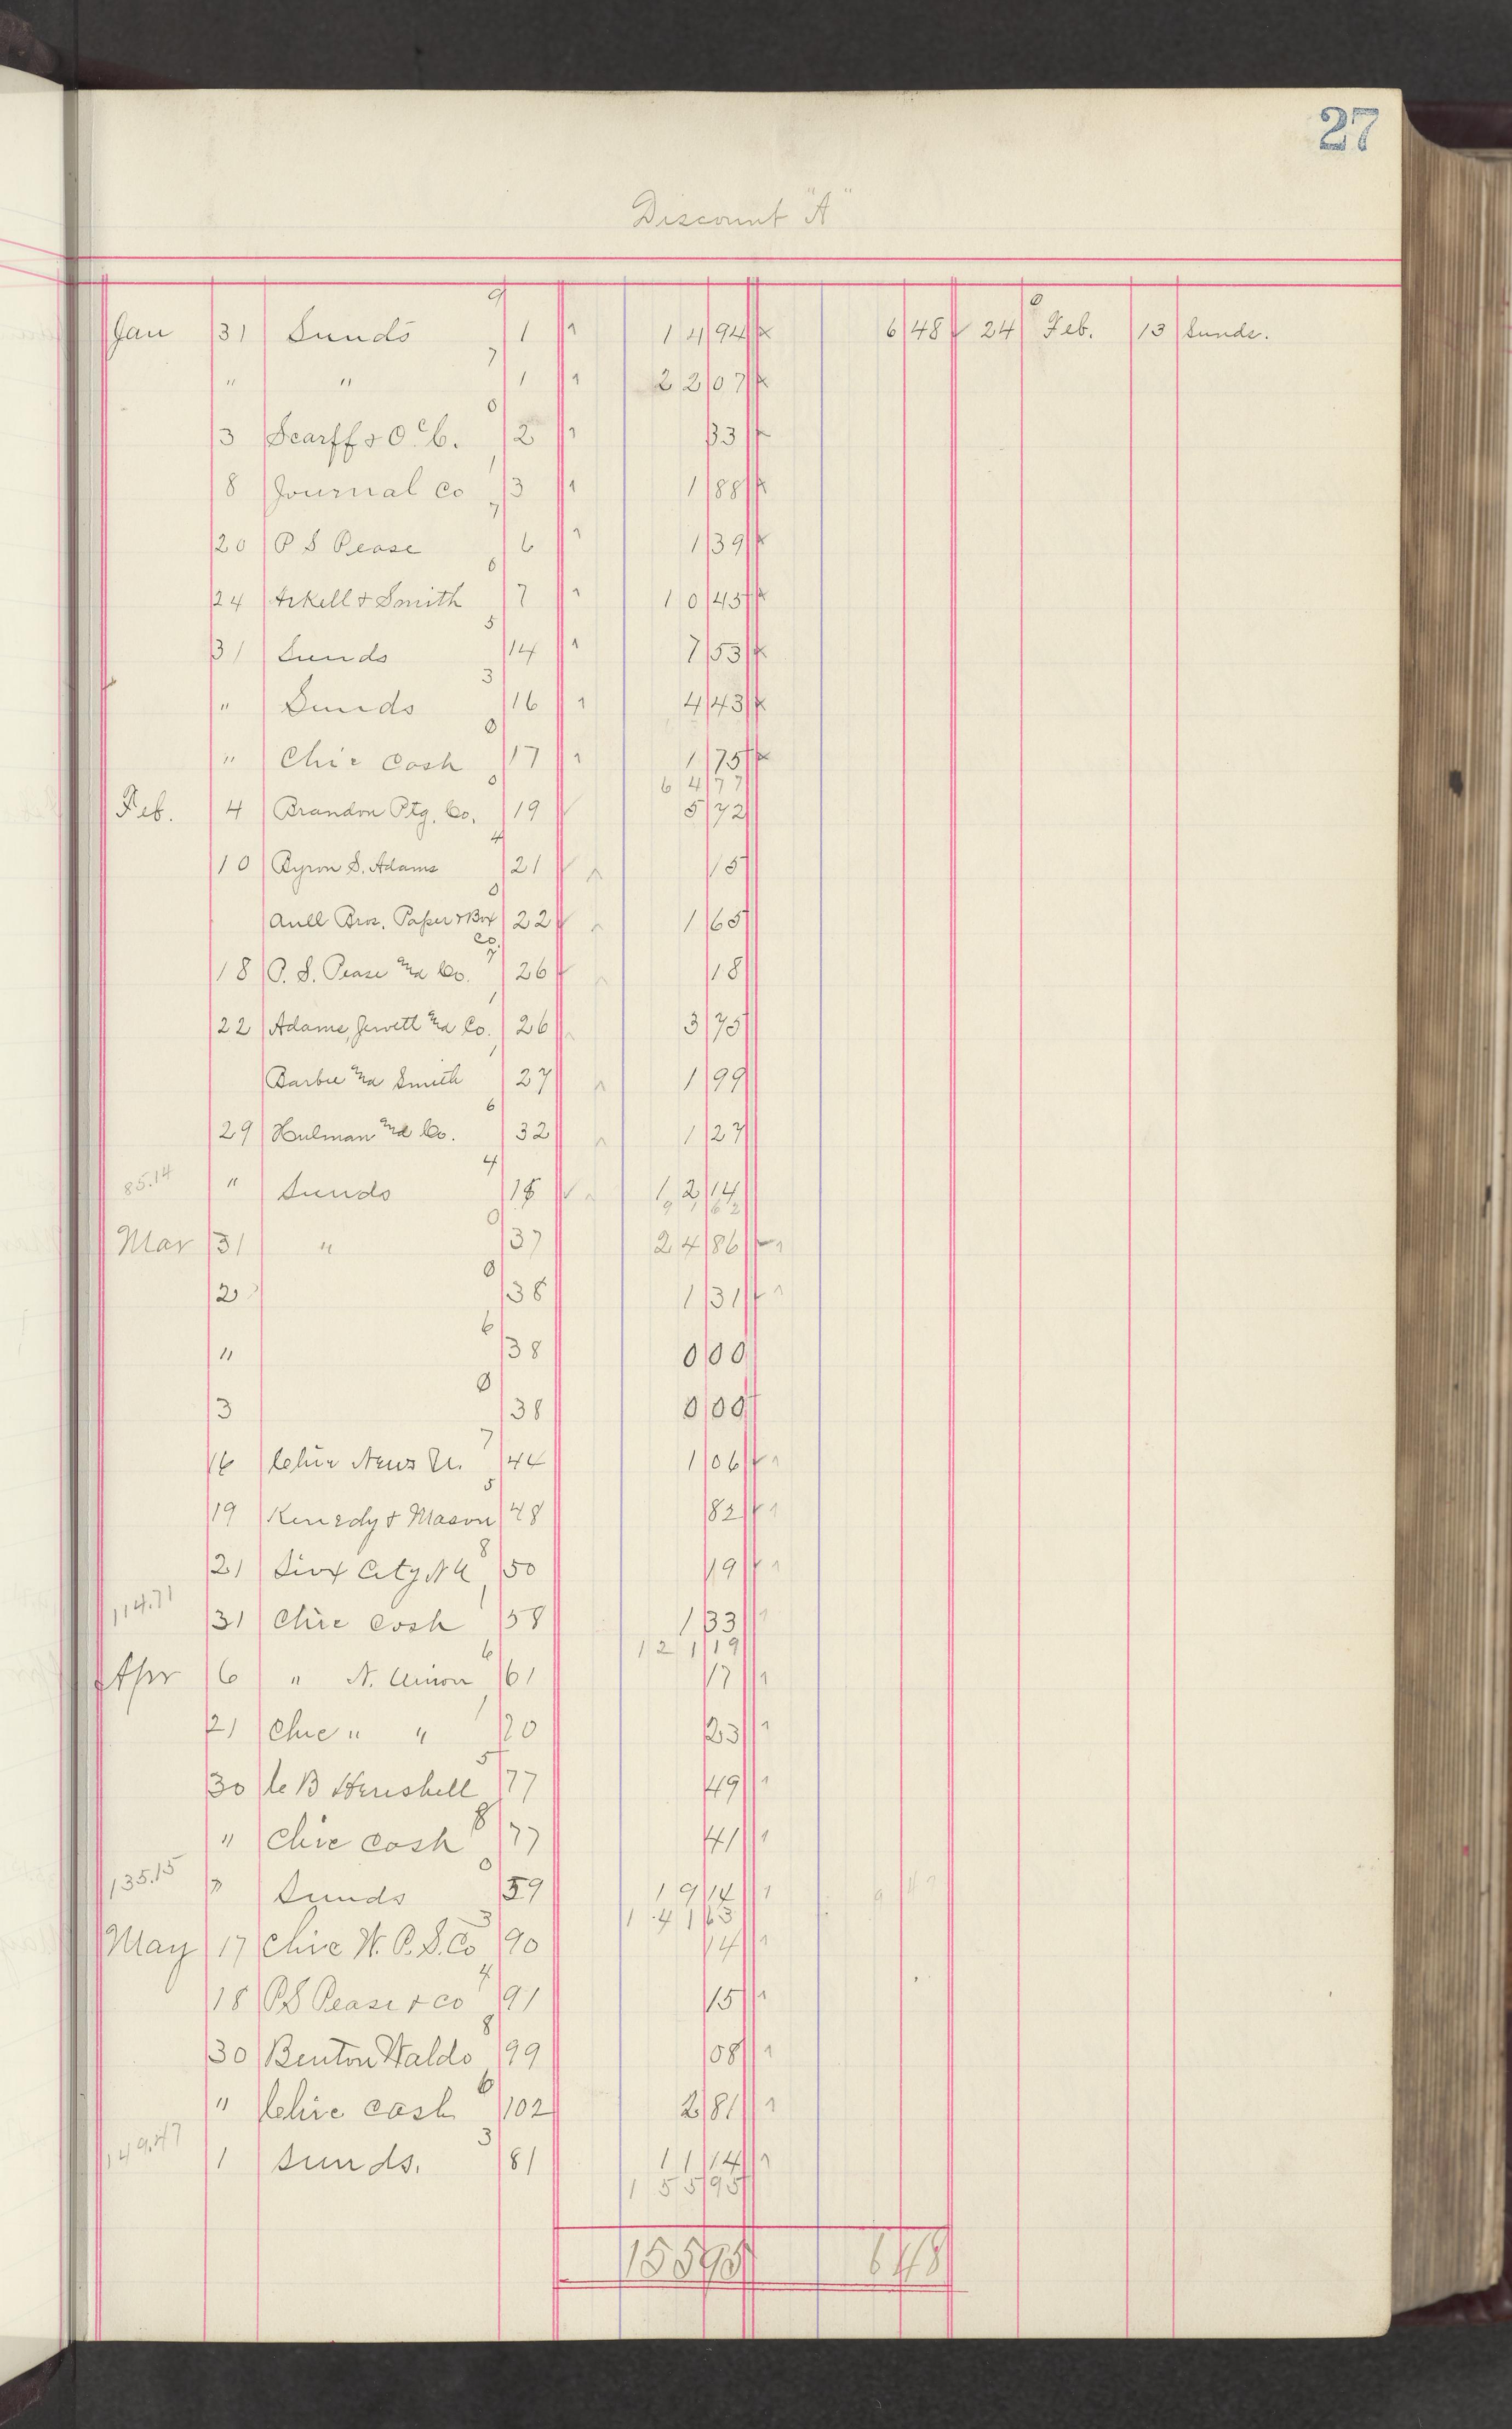 27
Discount "A"
9
Jan 31 Sunds 1 14 94 6 48 24 0 Feb. 13 Sunds.
7
" " 1 22 07
0
3 Scarff & O'C. 2 33
1
8 Journal Co 3 1 88
7
20 P S Pease 6 1 39
0
24 Arkell & Smith 7 10 45
5
31 Sunds 14 7 53
3
" Sunds 16 4 43
0
" Chic Cash 17 1 75
0 64 77
Feb. 4 Brandon Ptg. Co. 19 5 72
4
10 Byron S. Adams 21 15
0
Aull Bros. Paper & Box 22 1 65
Co.
7
18 P. S. Pease and Co. 26 18
1
22 Adams, Jewett and Co. 26 3 75
1
Barbee and Smith 27 1 99
6
29 Hulman and Co. 32 1 27
4
85.14 " Sunds 15 12 14
0 91 62
Mar 31 " 37 24 86
0
2 38 1 31
6
" 38 0 00
0
3 38 0 00
7
16 Chic News Un. 44 1 06
5
19 Kenedy & Mason 48 82
8
21 Siox City N U 50 19
1
114.71 31 Chic Cash 58 1 33
6 121 19
Apr 6 " N. Union 61 17
1
21 Chic " " 70 23
5
30 C B Henshell 77 49
8
" Chic Cash 77 41
0
135.15 " Sunds 59 19 14
3 141 63
May 17 Chic W. P. S. Co 90 14
4
18 P S Pease & Co 91 15
8
30 Benton Waldo 99 08
6
" Chic Cash 102 2 81
3
149.47 1 Sunds. 81 11 14
155 95
155 95 6 48